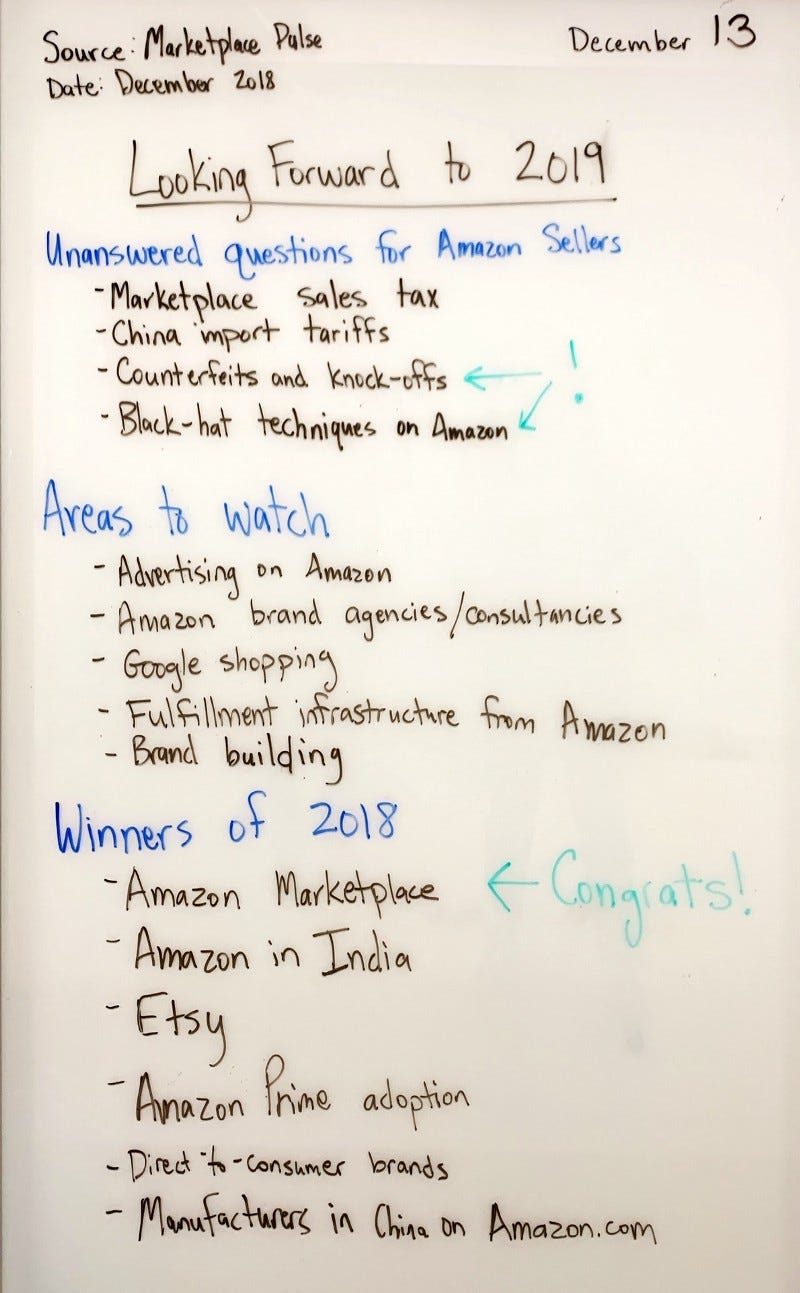 Source: Marketplace Pulse
December 13
Date: December 2018
Looking Forward to 2019
Unanswered questions for Amazon Sellers
- Marketplace sales tax
- China import tariffs
- Counterfeits and knock-offs ← !
- Black-hat techniques on Amazon
Areas to watch
- Advertising on Amazon
- Amazon brand agencies/consultancies
- Google shopping
- Fulfillment infrastructure from Amazon
- Brand building
Winners of 2018
- Amazon Marketplace ← Congrats!
- Amazon in India
- Etsy
- Amazon Prime adoption
- Direct-to-consumer brands
- Manufacturers in China on Amazon.com